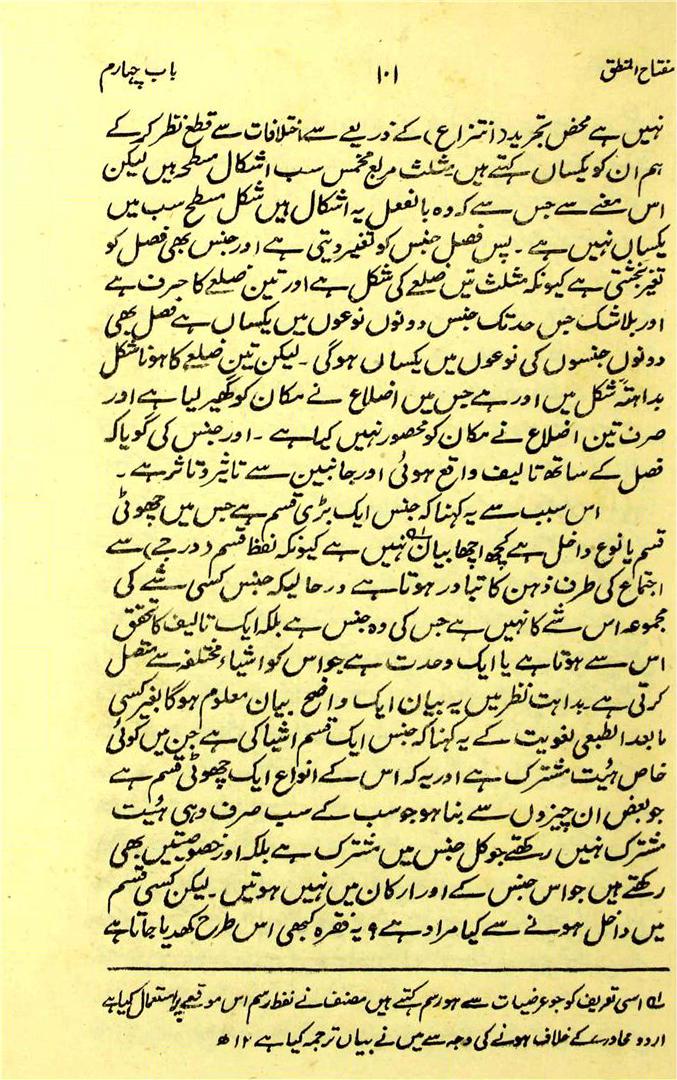 مفتاح المنطق
۱۰۱
باب چہارم
نہیں ہے محض تجرید (انتزاع) کے ذریعے سے اختلافات سے قطع نظر کر کے
ہم ان کو یکساں کہتے ہیں مثلث مربع مخمس سب اشکال مسطحہ ہیں لیکن
اس معنے سے جس سے کہ وہ بالفعل یہ اشکال ہیں شکل مسطح سب میں
یکساں نہیں ہے ۔ پس فصل جنس کو تغیر دیتی ہے اور جنس بھی فصل کو
تغیر بخشتی ہے کیونکہ مثلث تین ضلعے کی شکل ہے اور تین ضلعے کا حرف ہے
اور بلاشک جس حد تک جنس دونوں نوعوں میں یکساں ہے فصل بھی
دونوں جنسوں کی نوعوں میں یکساں ہوگی ۔ لیکن تین ضلعے کا ہونا شکل
بداہتہً شکل میں اور ہے جس میں اضلاع نے مکان کو گھیر لیا ہے اور
صرف تین اضلاع نے مکان کو محصور نہیں کیا ہے ۔ اور جنس کی گویا کہ
فصل کے ساتھ تالیف واقع ہوئی اور جانبین سے تاثیر و تاثر ہے ۔
اس سبب سے یہ کہنا کہ جنس ایک بڑی قسم ہے جس میں چھوٹی
قسم یا نوع داخل ہے کچھ اچھا بیان ؁۱ نہیں ہے کیونکہ لفظ قسم (درجے) سے
اجتماع کی طرف ذہن کا تبادر ہوتا ہے درحالیکہ جنس کسی شے کی
مجموعہ اس شے کا نہیں ہے جس کی وہ جنس ہے بلکہ ایک تالیف کا تحقق
اس سے ہوتا ہے یا ایک وحدت ہے جو اس کو اشیاء مختلفہ سے متصل
کرتی ہے بداہت نظر میں یہ بیان ایک واضح بیان معلوم ہوگا بغیر کسی
مابعد الطبعی لغویت کے یہ کہنا کہ جنس ایک قسم اشیا کی ہے جن میں کوئی
خاص ہئیت مشترک ہے اور یہ کہ اس کے انواع ایک چھوٹی قسم ہے
جو بعض ان چیزوں سے بنا ہو جو سب کے سب صرف وہی ہئیت
مشترک نہیں رکھتے جو کل جنس میں مشترک ہے بلکہ اور خصوصیتیں بھی
رکھتے ہیں جو اس جنس کے اور ارکان میں نہیں ہوتیں ۔ لیکن کسی قسم
میں داخل ہونے سے کیا مراد ہے ؟ یہ فقرہ کبھی اس طرح کہدیا جاتا ہے
؁۱ اسی تعریف کو جو عرضیات سے ہو رسم کہتے ہیں مصنف نے لفظ رسم اس موقعے پر استعمال کیا ہے
اردو محاورے کے خلاف ہونے کی وجہ سے میں نے بیاں ترجمہ کیا ہے ۱۲ ھ